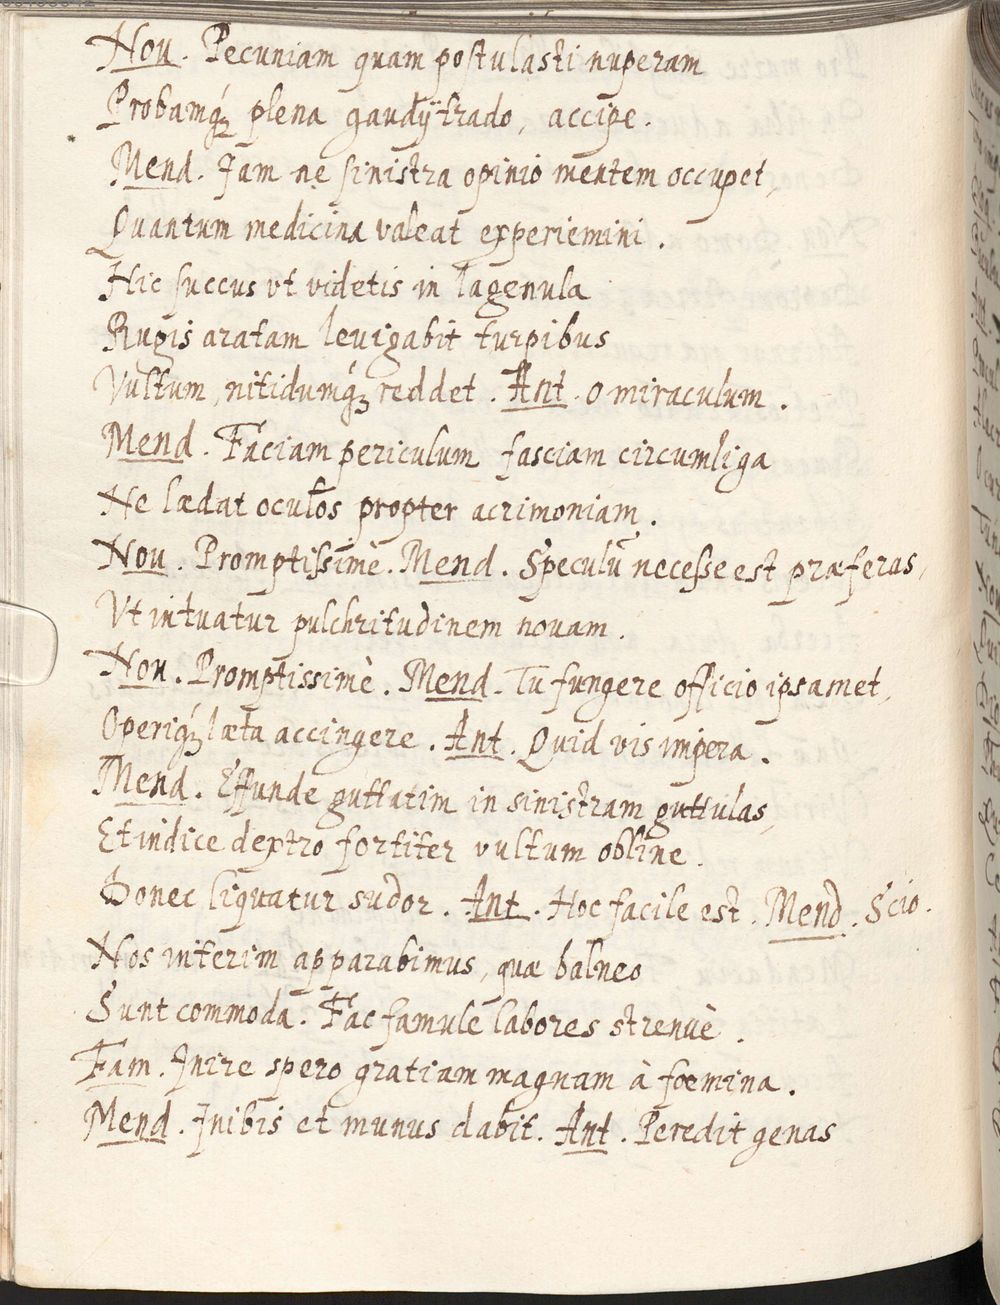 Nou. Pecuniam quam postulasti nuperam
Probamq́ꝫ plena gaudij trado, accipe.
Mend. Jam ne sinistra opinio mentem occupet,
Quantum medicina valeat experiemini.
Hic succus vt videtis in lagenula
Rugis aratam leuigabit turpibus
Vultum, nitidumq́ꝫ reddet. Ant. o miraculum.
Mend. Faciam periculum fasciam circumliga
Ne lædat oculos propter acrimoniam.
Nou. Promptissimè. Mend. Speculū necesse est præferas,
Vt intuatur pulchritudinem nouam.
Nou. Promptissimè. Mend. Tu fungere officio ipsamet,
Operiq́ꝫ læta accingere. Ant. Quid vis impera.
Mend. Effunde guttatim in sinistram guttulas,
Et indice dextro fortiter vultum obline.
Donec liquatur sudor. Ant. Hoc facile est. Mend. Scio.
Nos interim apparabimus, quæ balneo
Sunt commoda. Fac famule labores strenuè.
Fam. Inire spero gratiam magnam à fœmina.
Mend. Inibis et munus dabit. Ant. Peredit genas